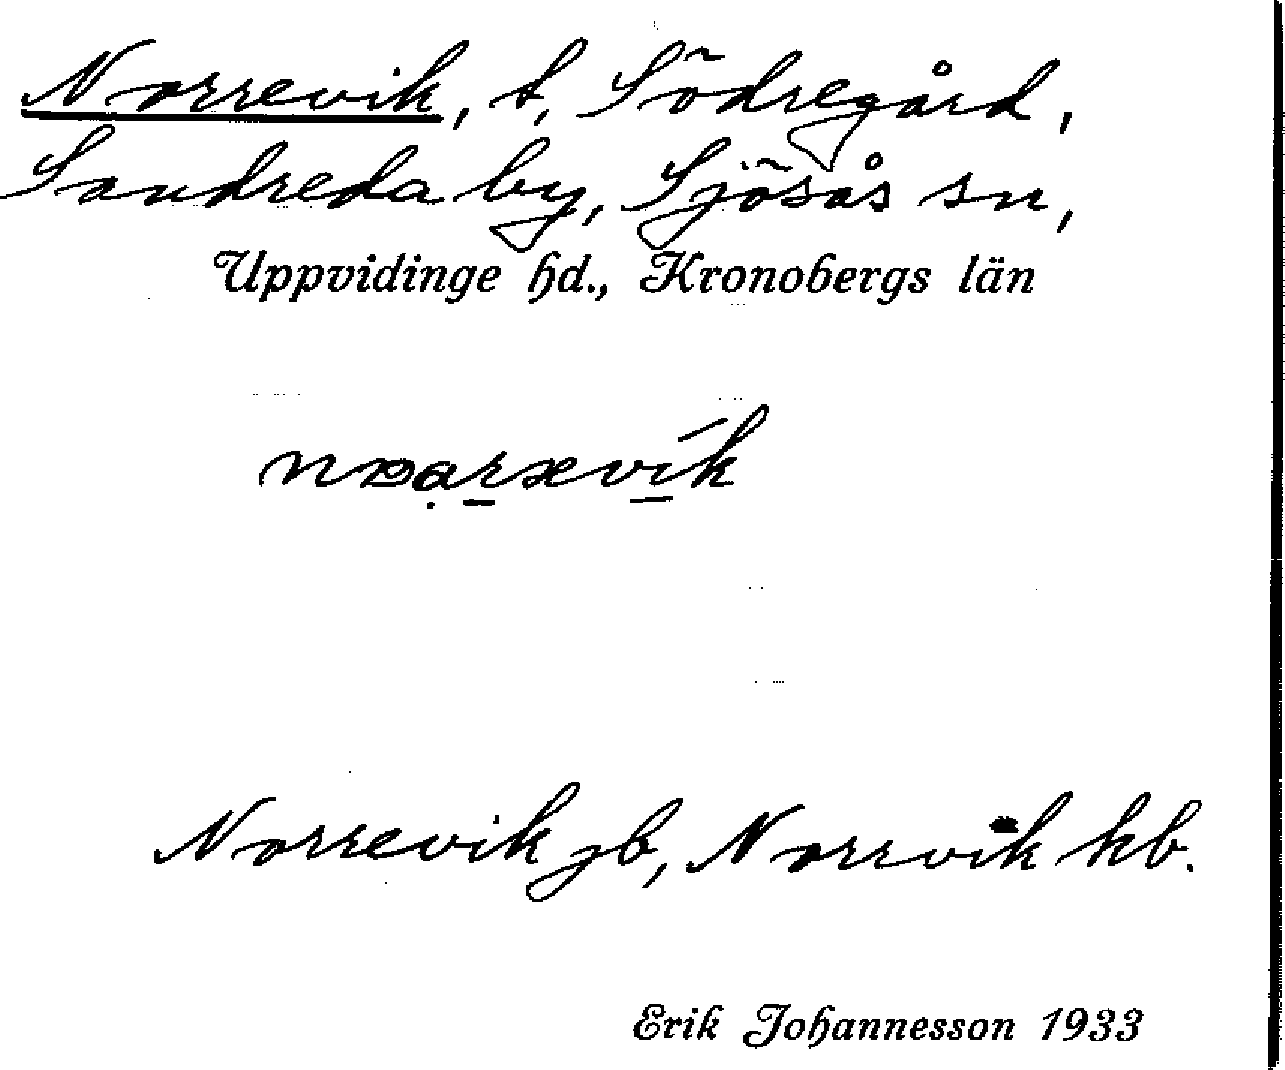 Norrevik, t, Södregård,
Sandreda by, Sjösås sn,
Uppvidinge hd., Kronobergs län
Norrevik jb, Norrvik kb.
Erik Johannesson 1933